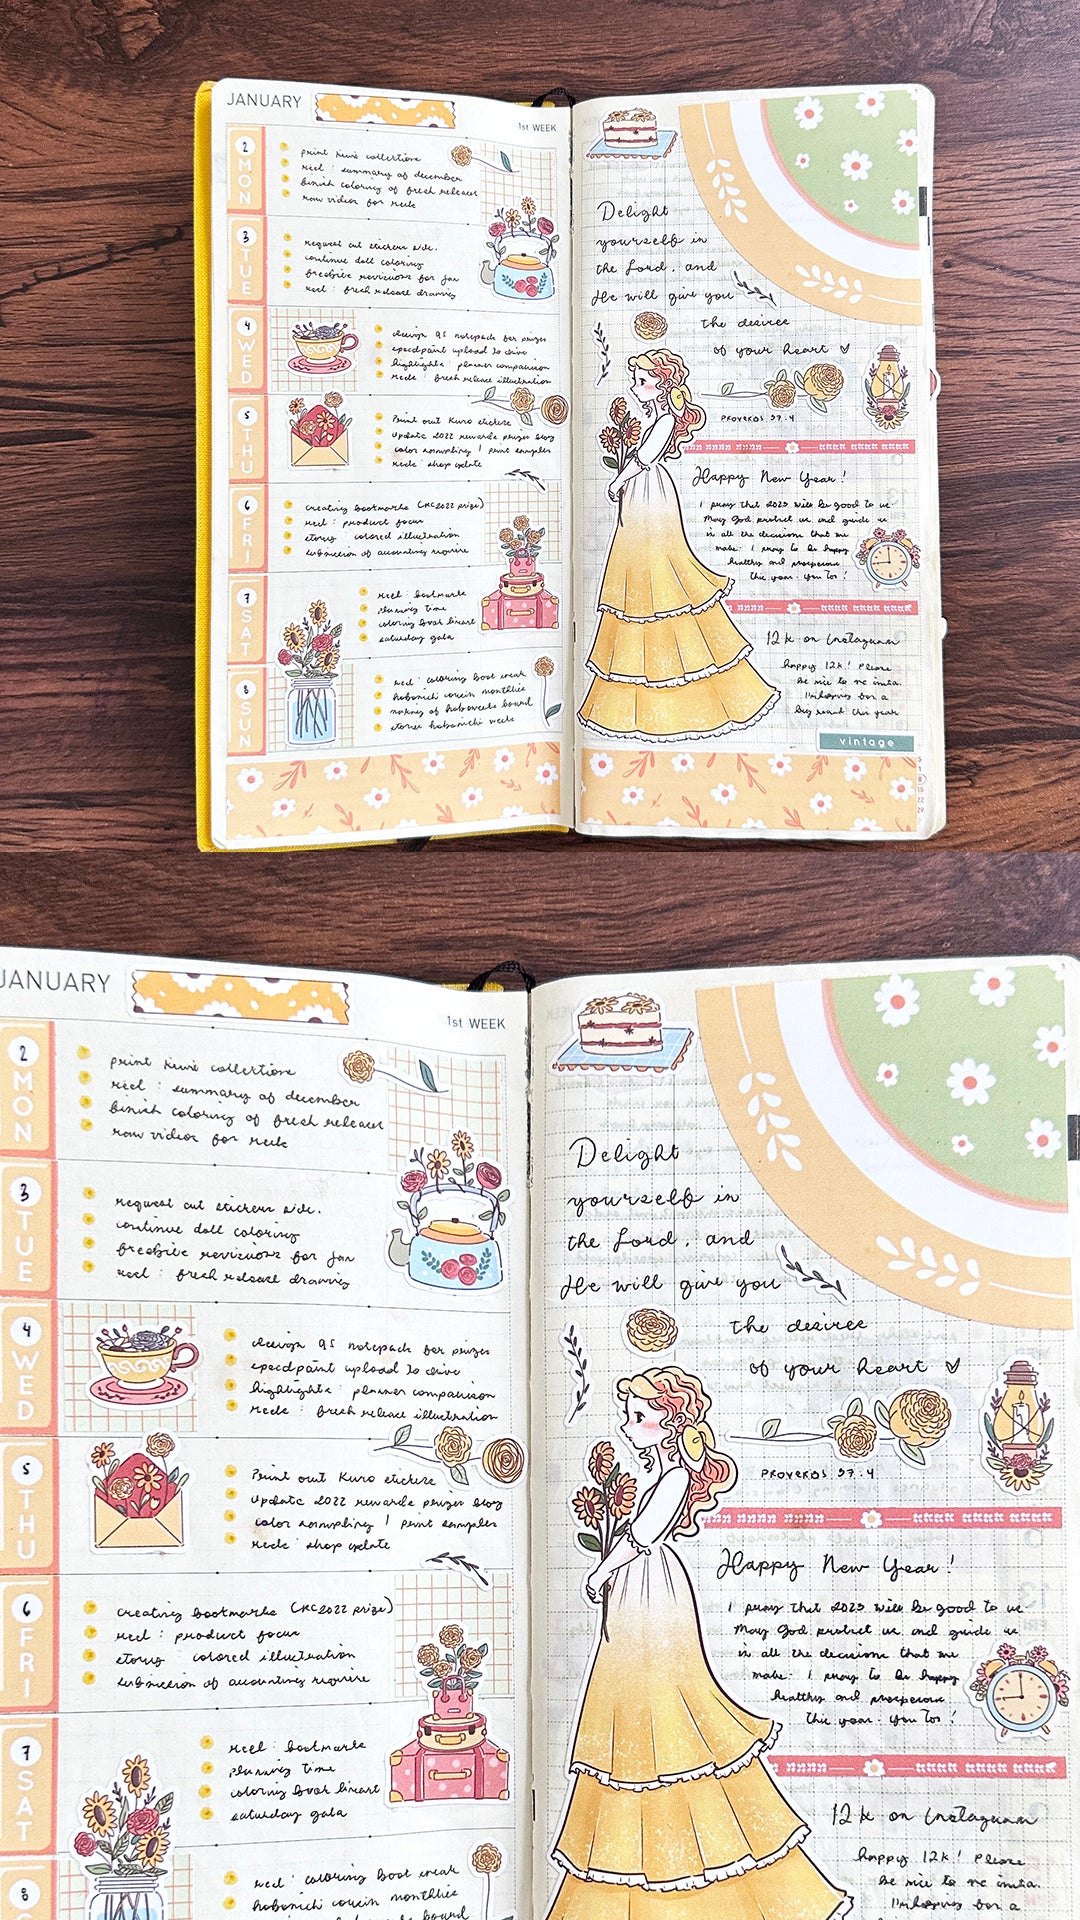 JANUARY
1st WEEK
2 MON
print Kuwi collections
reel : summary of december
finish coloring of fresh releases
raw videos for reels
3 TUE
request cut stickers
continue doll coloring
freebie revisions for jan
reel : fresh release drawing
4 WED
design 95 notepads for prizes
speedpaint upload to drive
highlights : planner comparison
reels : fresh release illustration
5 THU
Print out Kuro stickers
update 2022 rewards prizes blog
color sampling / print samples
reels : shop update
6 FRI
creating bookmarks (KC2022 prize)
reel : product focus
story : colored illustration
submission of accounting require
7 SAT
reel : bookmarks
planning time
coloring book lineart
saturday gala
8 SUN
reel : coloring book
hobonichi cousin monthlies
making of hoboweeks board
stories hobonichi weeks
Delight
yourself in
the Lord, and
He will give you
the desires
of your heart
PROVERBS 37:4
Happy New Year!
I pray that 2023 will be good to us.
May God protect us and guide us
in all the decisions that we
make. I pray to be happy
healthy and prosperous
this year. You too!
12k on Instagram
happy 12k! Please
be nice to me insta.
for a
big reach this year
vintage
JANUARY
1st WEEK
2 MON
print Kuwi collections
reel : summary of december
finish coloring of fresh releases
raw videos for reels
3 TUE
request cut stickers
continue doll coloring
freebie revisions for jan
reel : fresh release drawing
4 WED
design 95 notepads for prizes
speedpaint upload to drive
highlights : planner comparison
reels : fresh release illustration
5 THU
Print out Kuro stickers
update 2022 rewards prizes blog
color sampling / print samples
reels : shop update
6 FRI
creating bookmarks (KC2022 prize)
reel : product focus
story : colored illustration
submission of accounting require
7 SAT
reel : bookmarks
planning time
coloring book lineart
saturday gala
8
reel : coloring book
hobonichi cousin monthlies
of hoboweeks board
Delight
yourself in
the Lord, and
He will give you
the desires
of your heart
PROVERBS 37:4
Happy New Year!
I pray that 2023 will be good to us.
May God protect us and guide us
in all the decisions that we
make. I pray to be happy
healthy and prosperous
this year. You too!
12k on Instagram
happy 12k! Please
be nice to me insta.
for a